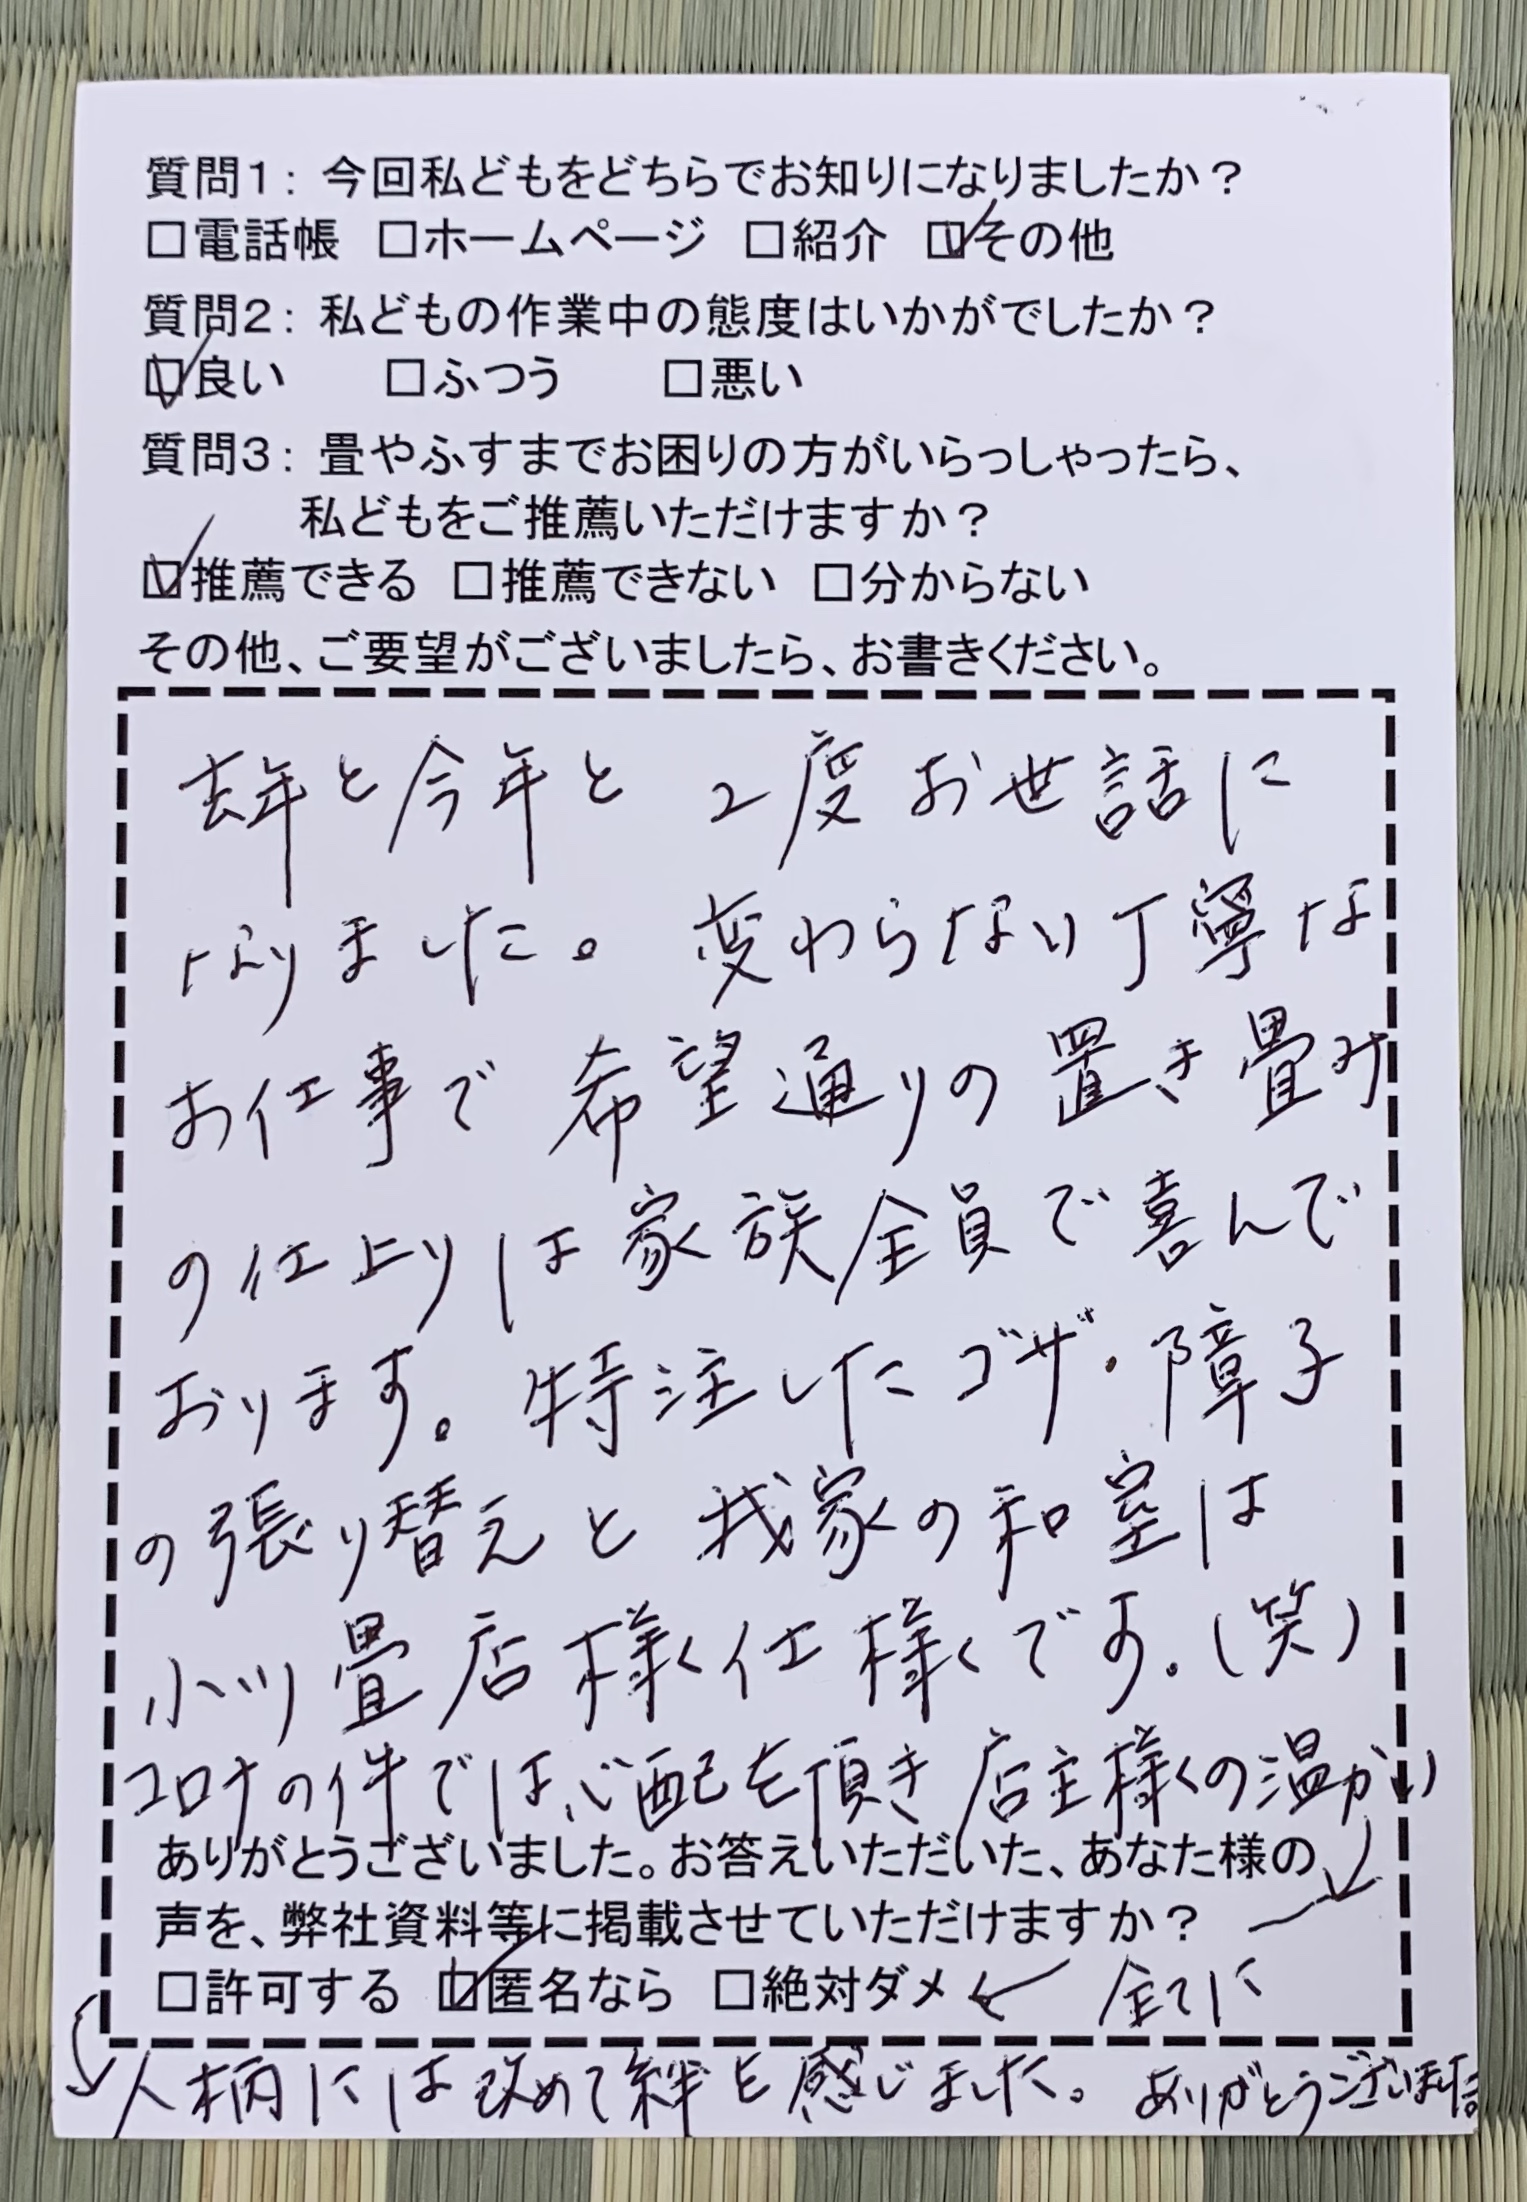 質問1: 今回私どもをどちらでお知りになりましたか?
□電話帳 □ホームページ □紹介 ☑その他
質問2: 私どもの作業中の態度はいかがでしたか?
☑良い □ふつう □悪い
質問3: 畳やふすまでお困りの方がいらっしゃったら、
私どもをご推薦いただけますか?
☑推薦できる □推薦できない □分からない
その他、ご要望がございましたら、お書きください。
去年と今年と 2度お世話に
なりました。変わらない丁寧な
お仕事で 希望通りの置き畳み
の仕上りは家族全員で喜んで
おります。特注したゴザ・障子
の張り替えと 我家の和室は
小川畳店様く仕様くです。(笑)
コロナの件では心配を頂き店主様くの温かい
ありがとうございました。お答えいただいた、あなた様の
声を、弊社資料等に掲載させていただけますか?
□許可する ☑匿名なら □絶対ダメ ← 全てに
人柄には改めて絆を感じました。ありがとうございました。